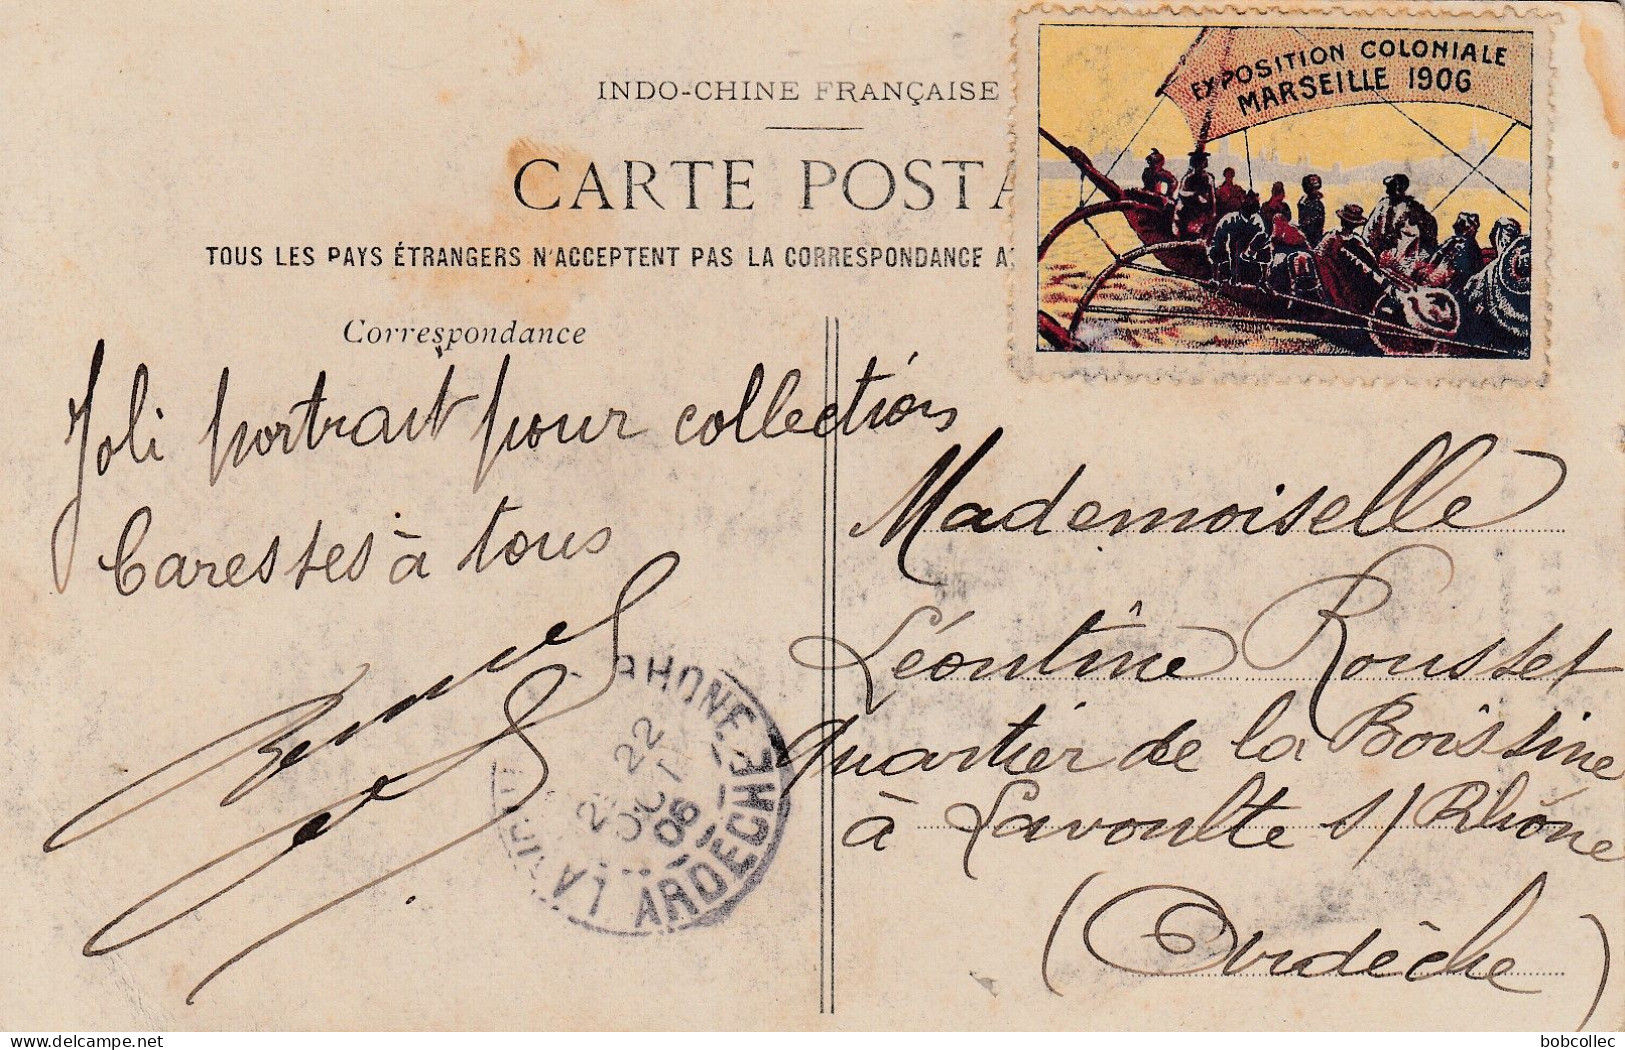 INDO-CHINE FRANÇAISE
CARTE POSTA
TOUS LES PAYS ÉTRANGERS N'ACCEPTENT PAS LA CORRESPONDANCE A
EXPOSITION COLONIALE
MARSEILLE 1906
Correspondance
Joli portrait pour collections
Caresses à tous
Mademoiselle
Léontine Rousset
Quartier de la Boissine
à Lavoulte s/ Rhône
(Ardèche)
RHONE
22
OCT
06
LA
ARDÈCHE
bobcollec